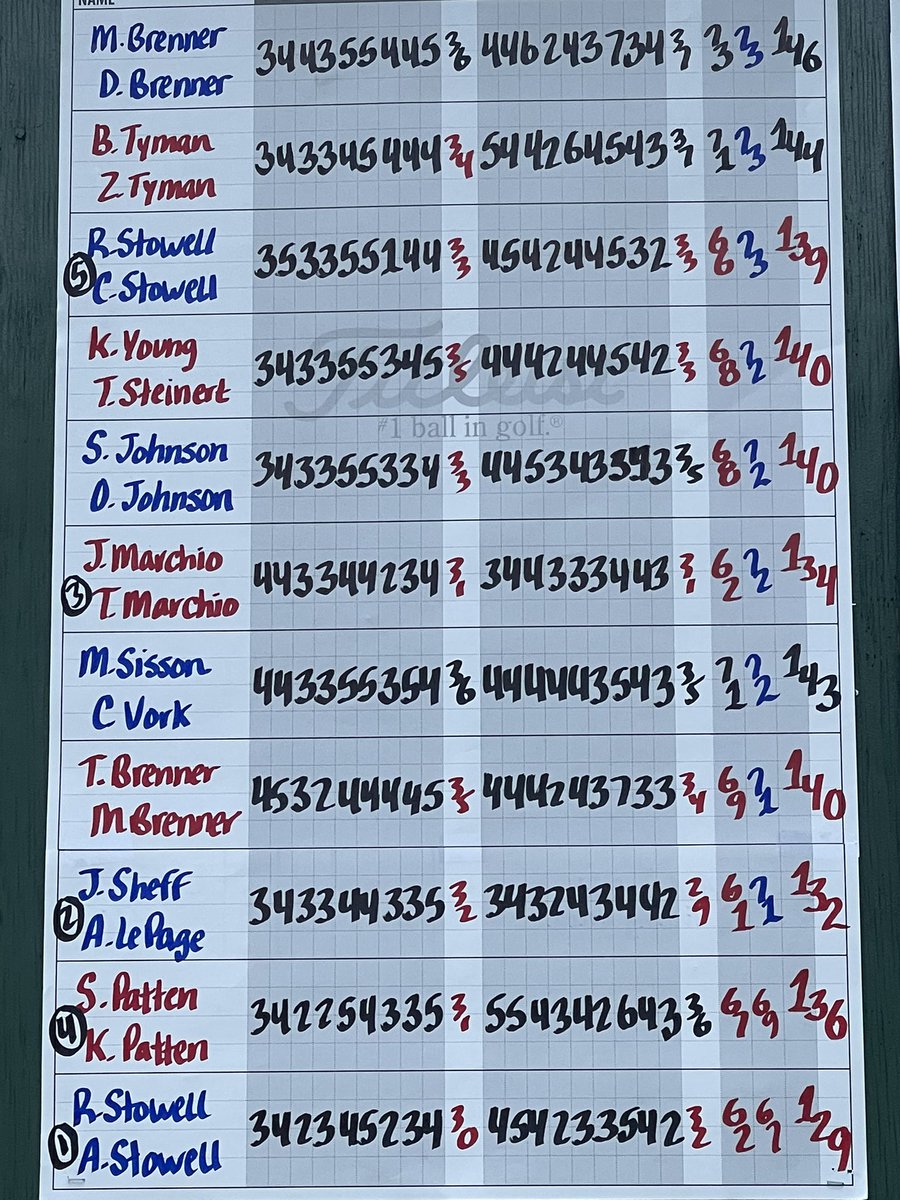 NAME
M. Brenner
D. Brenner
344355445 36 446243734 37 73 73 146
B. Tyman
Z. Tyman
343345444 34 544264543 37 71 73 144
5
R. Stowell
C. Stowell
353355144 33 454244532 33 66 73 139
K. Young
T. Steinert
343355345 35 444244542 33 68 72 140
Titleist
#1 ball in golf.®
S. Johnson
D. Johnson
343355334 33 35 68 72 140
3
J. Marchio
T. Marchio
443344234 31 344333443 31 62 72 134
M. Sisson
C Vork
443355354 36 444443543 35 71 72 143
T. Brenner
M. Brenner
453244445 35 444243733 34 69 71 140
2
J. Sheff
A. LePage
343344335 32 343243442 29 61 71 132
4
S. Patten
K. Patten
342254335 31 554342643 36 67 69 136
1
R. Stowell
A. Stowell
342345234 30 454233542 32 62 67 129